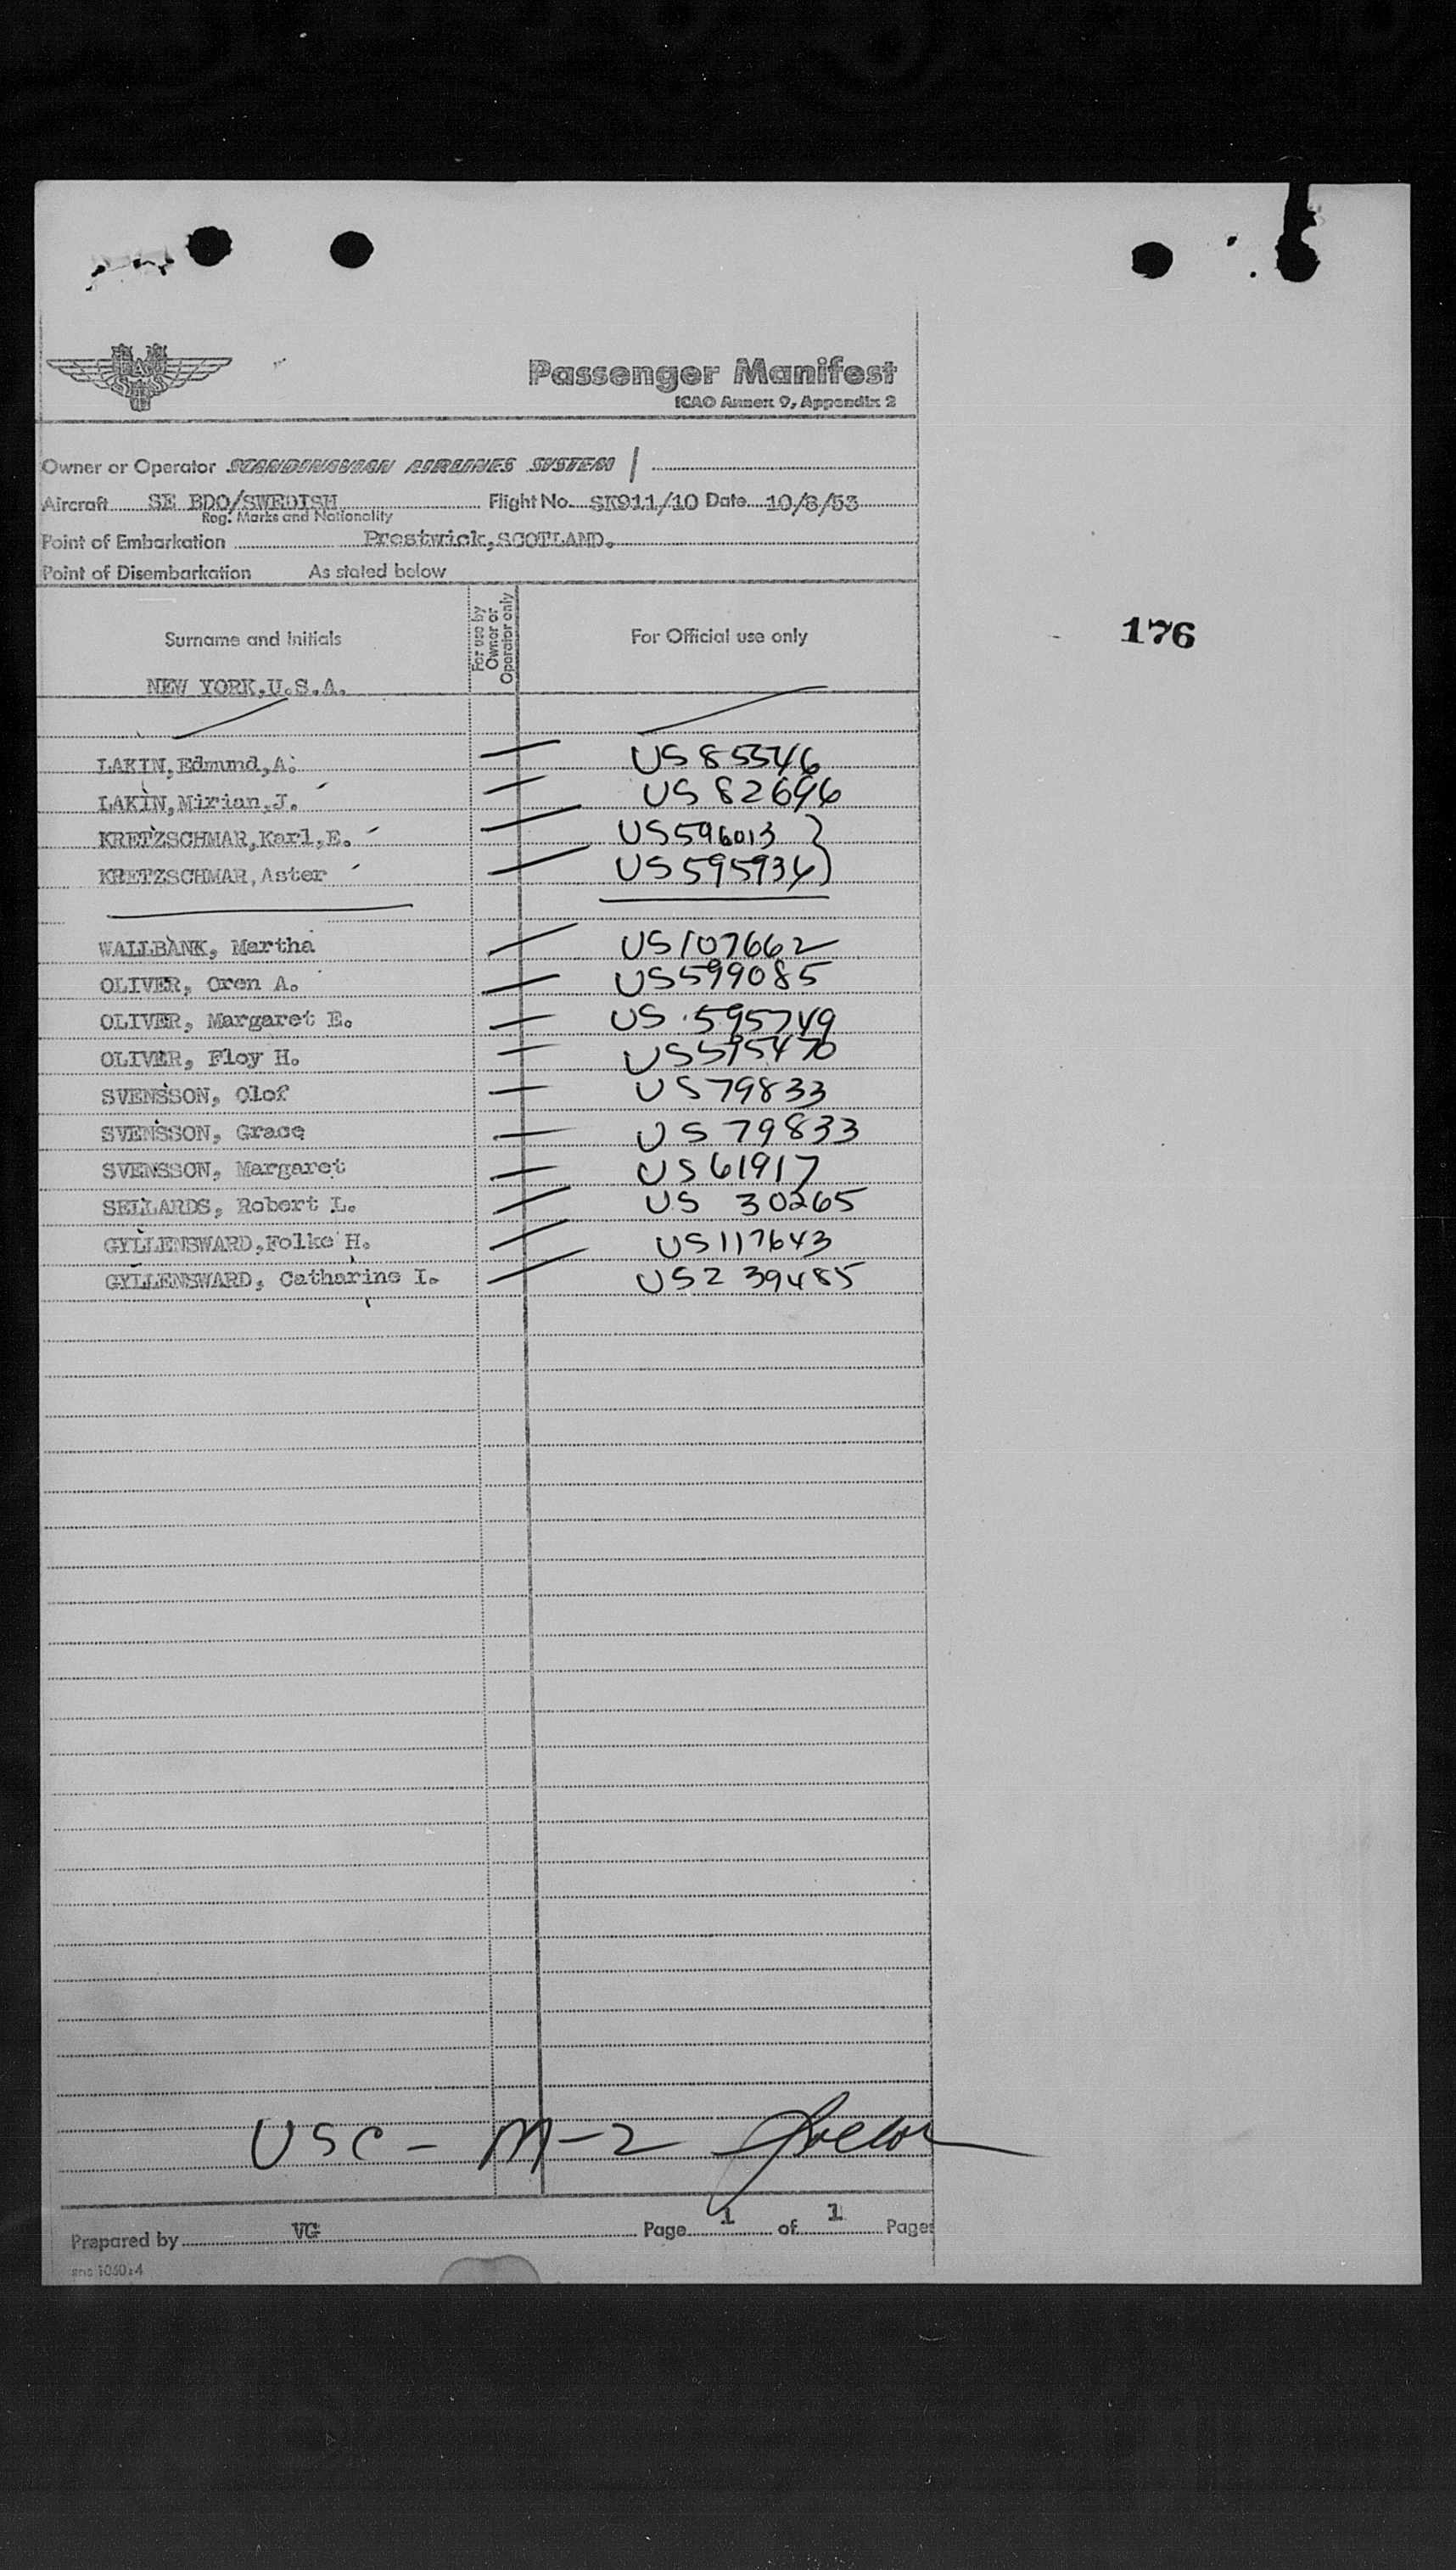 SAS
Passenger Manifest
ICAO Annex 9, Appendix 2
Owner or Operator SCANDINAVIAN AIRLINES SYSTEM
Aircraft SE BDO/SWEDISH Flight No. SK911/10 Date 10/8/53
Reg. Marks and Nationality
Point of Embarkation Prestwick, SCOTLAND.
Point of Disembarkation As stated below
Surname and Initials For use by Owner or Operator only For Official use only
176
NEW YORK, U.S.A.
LAKIN, Edmund, A. US 85546
LAKIN, Mirian, J. US 82696
KRETZSCHMAR, Karl, E. US596013
KRETZSCHMAR, Aster US595934
WALLBANK, Martha US107662
OLIVER, Oren A. US599085
OLIVER, Margaret E. US 595749
OLIVER, Floy H. US595470
SVENSSON, Olof US79833
SVENSSON, Grace US 79833
SVENSSON, Margaret US61917
SELLARDS, Robert L. US 30265
GYLLENSWARD, Folke H. US117643
GYLLENSWARD, Catharine I. US239485
USC - M-2
Prepared by VG Page 1 of 1 Pages